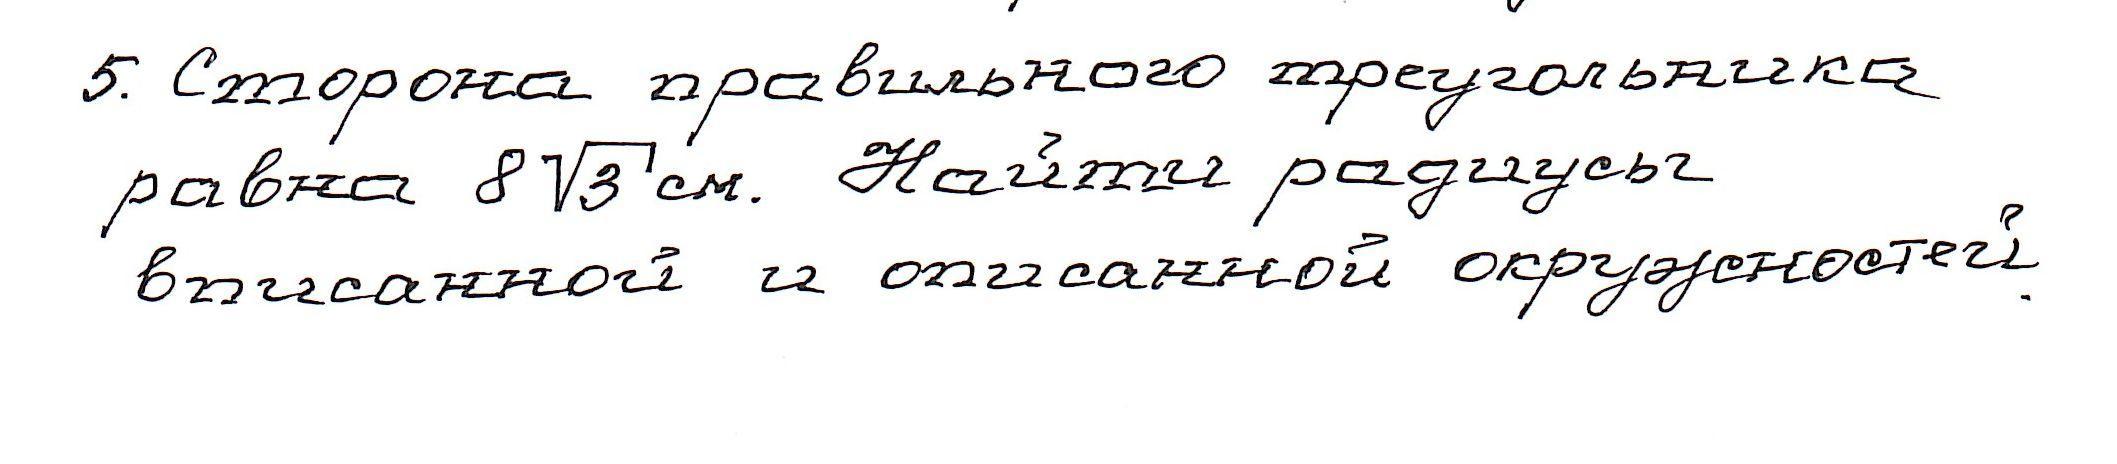 5. Сторона правильного треугольника
равна 8√3 см. Найти радиусы
вписанной и описанной окружностей.